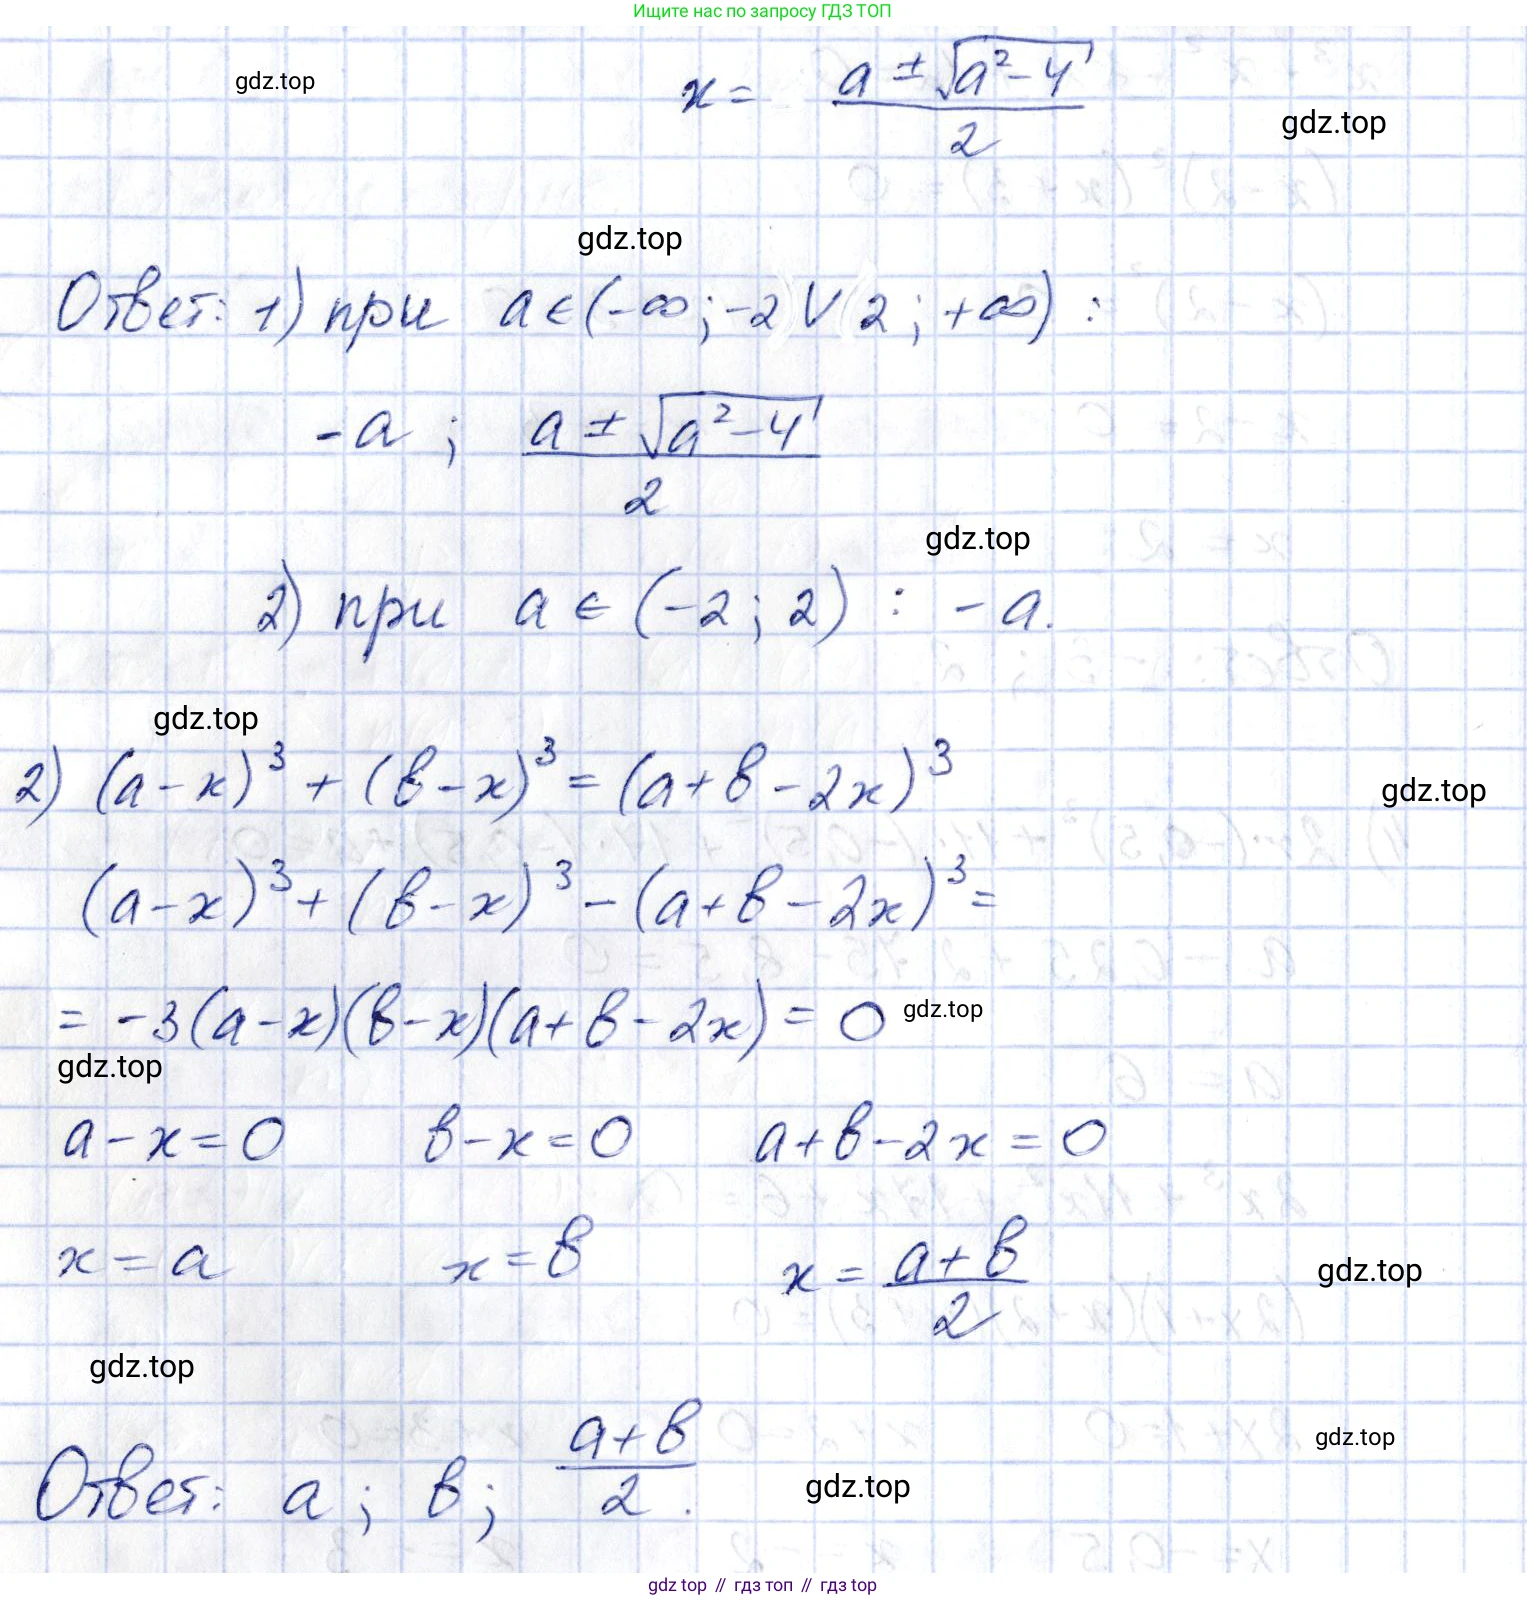 Ищите нас по запросу ГДЗ ТОП
gdz.top
x = (a ± √(a² - 4)) / 2
gdz.top
gdz.top
Ответ: 1) при a ∈ (-∞; -2) ∨ (2; +∞) :
-a ; (a ± √(a² - 4)) / 2
gdz.top
2) при a ∈ (-2; 2) : - a.
gdz.top
2) (a - x)³ + (в - x)³ = (a + в - 2x)³
gdz.top
(a - x)³ + (в - x)³ - (a + в - 2x)³ =
= -3(a - x)(в - x)(a + в - 2x) = 0
gdz.top
gdz.top
a - x = 0 в - x = 0 a + в - 2x = 0
x = a x = в x = (a + в) / 2
gdz.top
gdz.top
gdz.top
Ответ: a ; в ; (a + в) / 2 .
gdz.top
gdz top // гдз топ // гдз top